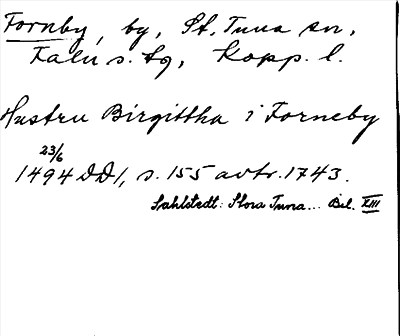 Fornby, by, St. Tuna sn,
Falu s. tg, Kopp. l.
Hustru Birgittha i Forneby
23/6
1494 DD1, s. 155 avtr. 1743.
Sahlstedt: Stora Tuna... Bil. XIII